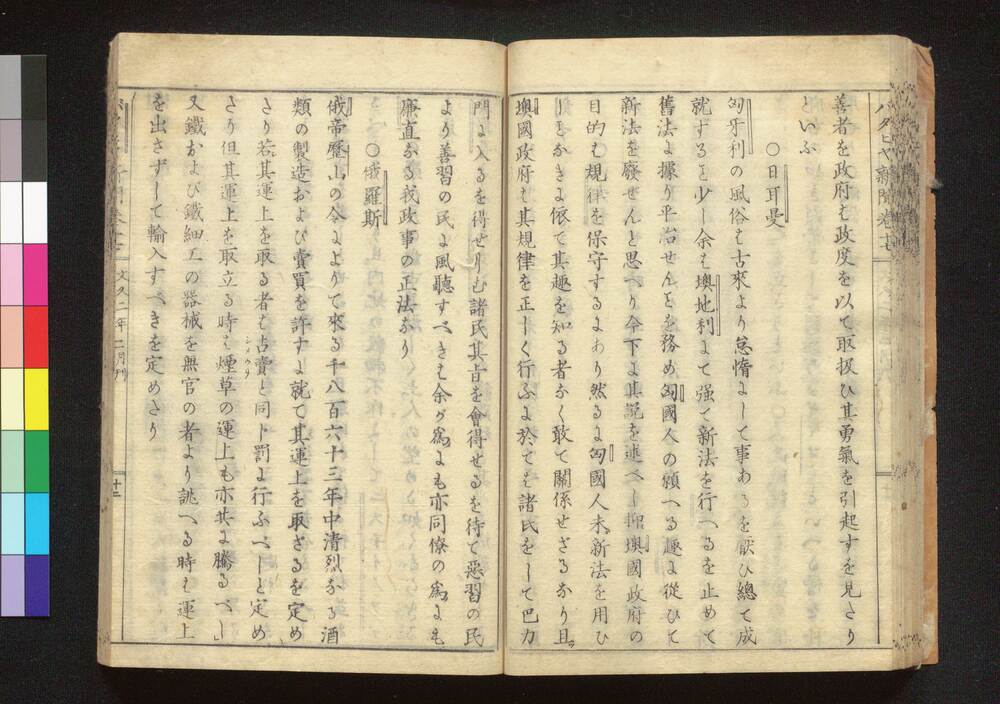 バタヒヤ新聞 卷十七
善者を政府も政度を以て取扱ひ其勇氣を引起すを見さり
といふ
○日耳曼
匈牙利の風俗も古來より怠惰よして事あるを厭ひ總て成
就すると少し余も墺地利よて强て新法を行へるを止めて
舊法よ據り平治せんとを務め匈國人の願へる趣よ從ひて
新法を廢せんと思へり今下よ其說を述へし抑墺國政府の
目的も規律を保守するよあり然るよ匈國人未新法を用ひ
しとなきよ依て其趣を知る者なく敢て關係せざるなり且ッ
墺國政府も其規律を正しく行ふよ於ても諸民をして巴力
門よ入るを得せしむ諸民其旨を會得せるを待て惡習の民
より善習の民よ風聽すべきも余が爲よも亦同僚の爲にも
廉直なる我政事の正法なり
○俄羅斯
俄帝歷山の令よよりて來る千八百六十三年中淸烈なる酒
類の製造および賣買を許すよ就て其運上を取ざるを定め
さり若其運上を取る者も占賣と同ト罰よ行ふべしと定め
さり但其運上を取立る時も煙草の運上も亦共よ騰るべし
又鐵および鐵細工の器械を無官の者より誂へる時も運上
を出さずして輸入すべきを定めさり
文久二年二月刊
十二